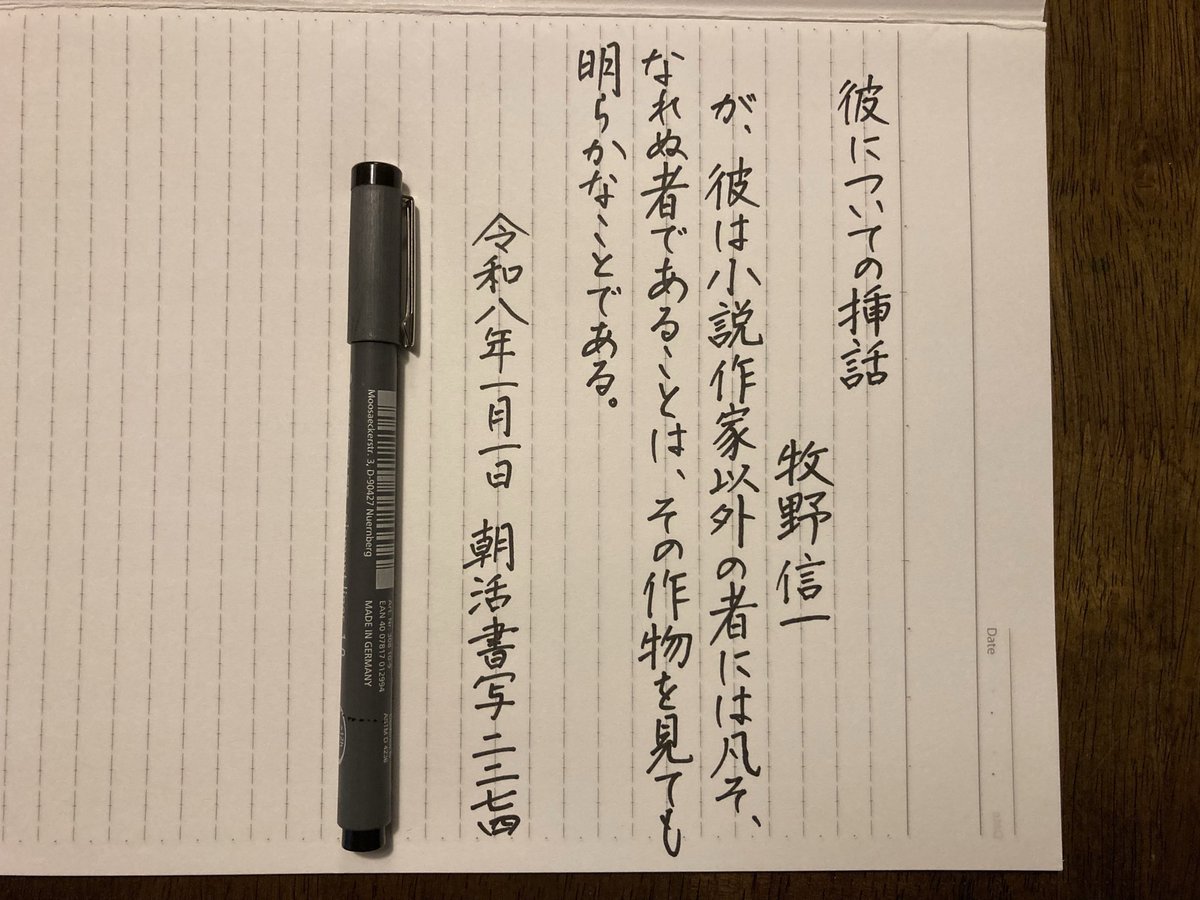 彼についての挿話
牧野信一
が、彼は小説作家以外の者には凡そ、
なれぬ者であることは、その作物を見ても
明らかなことである。
令和八年一月一日 朝活書写二二七四
Date
Moosaeckerstr. 3, D-90427 Nuernberg
EAN 40 07817 012994
MADE IN GERMANY
ASTM D 4236